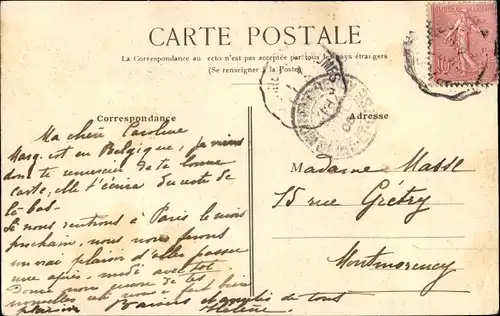 CARTE POSTALE
La Correspondance au recto n'est pas acceptée par tous les pays étrangers
(Se renseigner à la Poste)
Correspondance
Adresse
Ma chère Caroline
Marg. est en Belgique, je viens
donc te remercier de ta bonne
carte, elle t'écrira du reste de
là-bas.
Si nous rentrons à Paris le mois
prochain, nous nous ferons
un vrai plaisir d'aller passer
une après-midi avec toi
Donne nous de tes
nouvelles cela nous a fait bien
plaisir
Baisers de tous
Hélène.
Madame Masse
15 rue Grétry
Montmorency
10